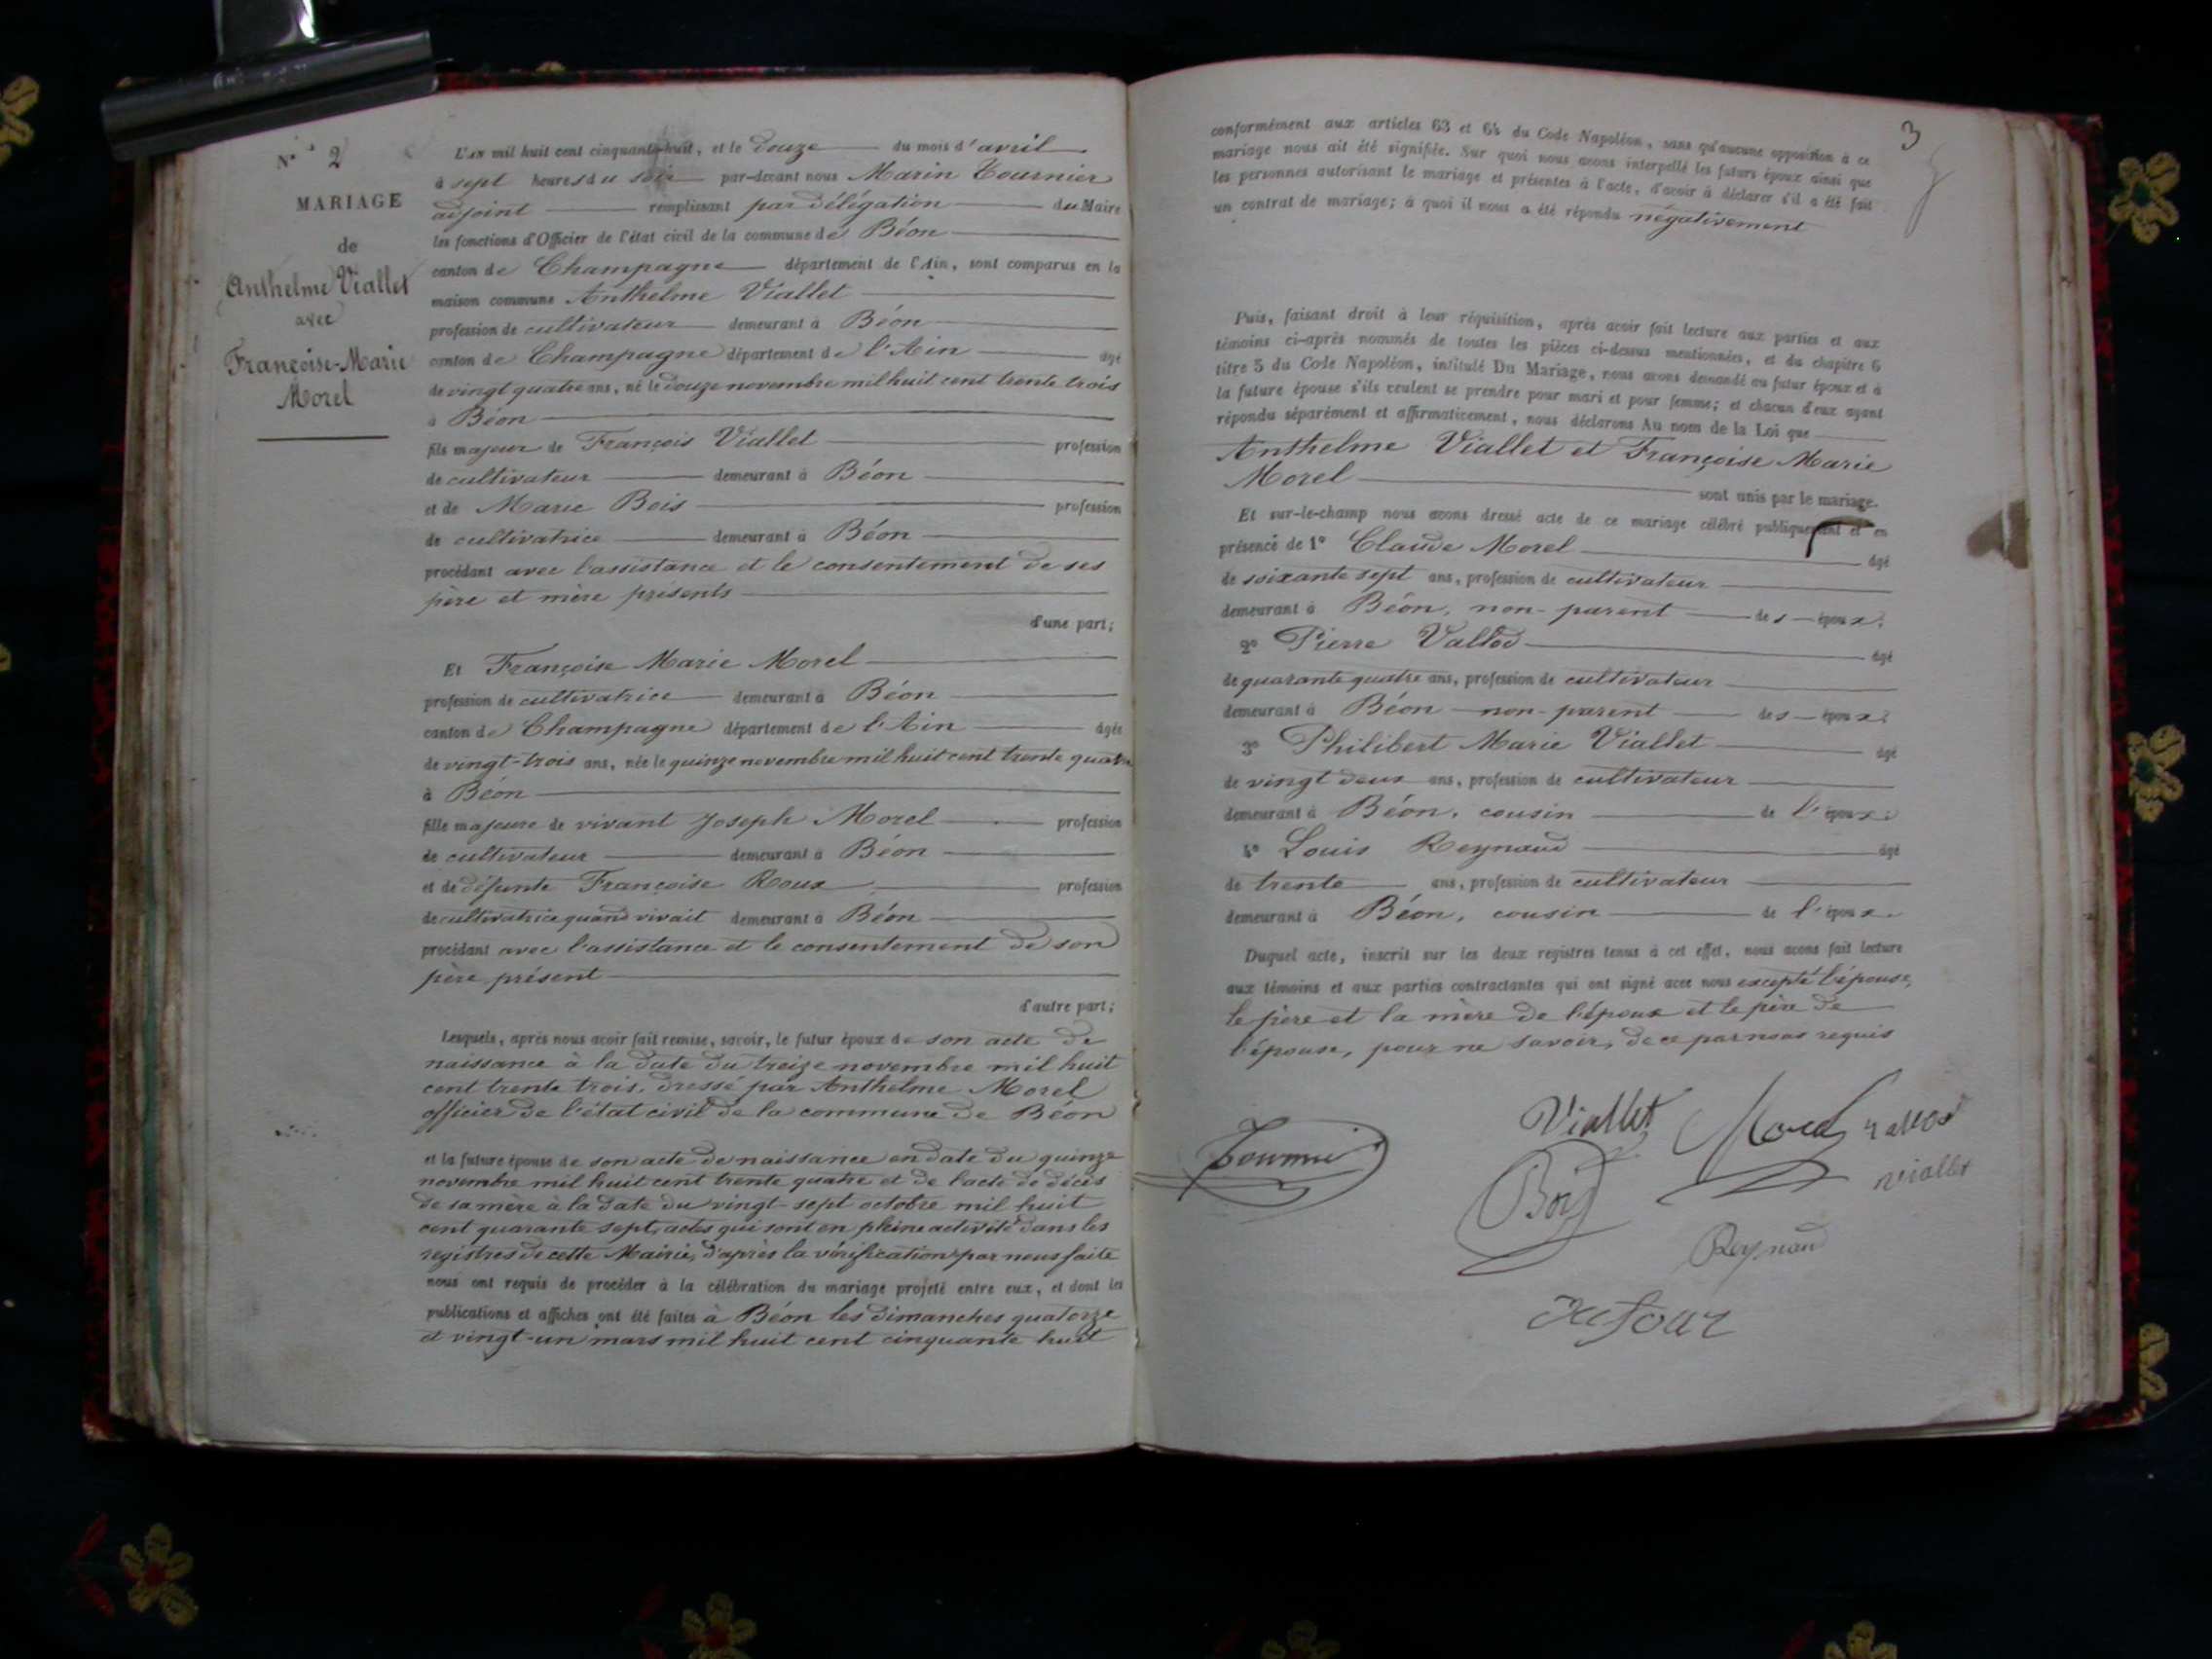 N° 2
MARIAGE
de
Anthelme Viallet
avec
Françoise-Marie
Morel
L'AN mil huit cent cinquante-huit, et le douze du mois d'avril
à sept heures du soir par-devant nous Marin Tournier
adjoint remplissant par délégation du Maire
les fonctions d'Officier de l'état civil de la commune de Béon
canton de Champagne département de l'Ain, sont comparus en la
maison commune Anthelme Viallet
profession de cultivateur demeurant à Béon
canton de Champagne département de l'Ain âgé
de vingt quatre ans, né le douze novembre mil huit cent trente trois
à Béon
fils majeur de François Viallet profession
de cultivateur demeurant à Béon
et de Marie Bois profession
de cultivatrice demeurant à Béon
procédant avec l'assistance et le consentement de ses
père et mère présents
d'une part;
Et Françoise Marie Morel
profession de cultivatrice demeurant à Béon
canton de Champagne département de l'Ain âgée
de vingt-trois ans, née le quinze novembre mil huit cent trente quatre
à Béon
fille majeure de vivant Joseph Morel profession
de cultivateur demeurant à Béon
et de défunte Françoise Roux profession
de cultivatrice quand vivait demeurant à Béon
procédant avec l'assistance et le consentement de son
père présent
d'autre part;
Lesquels, après nous avoir fait remise, savoir, le futur époux de son acte de
naissance à la date du treize novembre mil huit
cent trente trois, dressé par Anthelme Morel
officier de l'état civil de la commune de Béon
et la future épouse de son acte de naissance en date du quinze
novembre mil huit cent trente quatre et de l'acte de décès
de sa mère à la date du vingt-sept octobre mil huit
cent quarante sept, actes qui sont en pleine activité dans les
registres de cette Mairie, d'après la vérification par nous faite
nous ont requis de procéder à la célébration du mariage projeté entre eux, et dont les
publications et affiches ont été faites à Béon les dimanches quatorze
et vingt-un mars mil huit cent cinquante huit
3
conformément aux articles 63 et 64 du Code Napoléon, sans qu'aucune opposition à ce
mariage nous ait été signifiée. Sur quoi nous avons interpellé les futurs époux ainsi que
les personnes autorisant le mariage et présentes à l'acte, d'avoir à déclarer s'il a été fait
un contrat de mariage; à quoi il nous a été répondu négativement
Puis, faisant droit à leur réquisition, après avoir fait lecture aux parties et aux
témoins ci-après nommés de toutes les pièces ci-dessus mentionnées, et du chapitre 6
titre 5 du Code Napoléon, intitulé Du Mariage, nous avons demandé au futur époux et à
la future épouse s'ils veulent se prendre pour mari et pour femme; et chacun d'eux ayant
répondu séparément et affirmativement, nous déclarons Au nom de la Loi que
Anthelme Viallet et Françoise Marie
Morel sont unis par le mariage.
Et sur-le-champ nous avons dressé acte de ce mariage célébré publiquement et en
présence de 1° Claude Morel âgé
de soixante sept ans, profession de cultivateur
demeurant à Béon, non-parent des époux.
2° Pierre Vallod âgé
de quarante quatre ans, profession de cultivateur
demeurant à Béon non-parent des époux.
3° Philibert Marie Viallet âgé
de vingt deux ans, profession de cultivateur
demeurant à Béon, cousin de l'époux.
4° Louis Reynaud âgé
de trente ans, profession de cultivateur
demeurant à Béon, cousin de l'époux.
Duquel acte, inscrit sur les deux registres tenus à cet effet, nous avons fait lecture
aux témoins et aux parties contractantes qui ont signé avec nous excepté l'épouse,
le père et la mère de l'époux et le père de
l'épouse, pour ne savoir, de ce par nous requis
Viallet Morel
Tournier
Bois
viallet
Reynaud